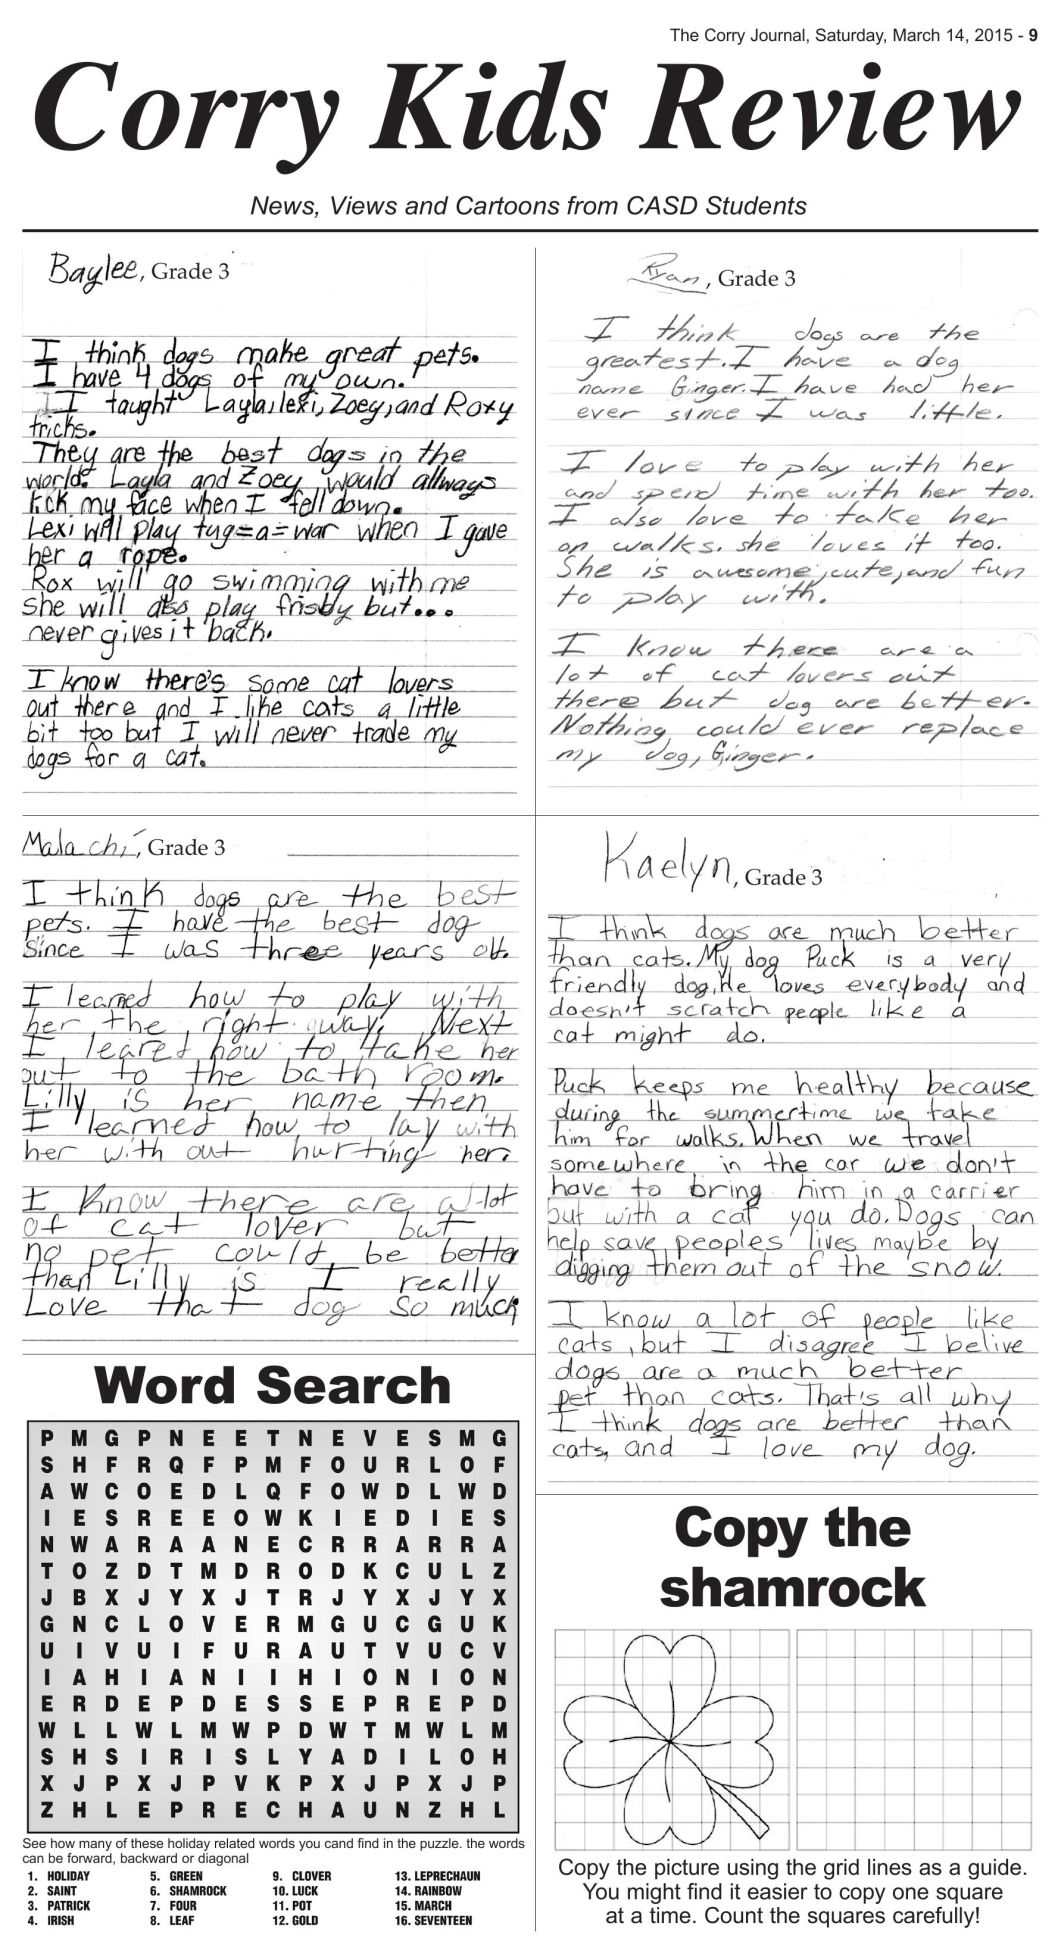 The Corry Journal, Saturday, March 14, 2015 - 9
Corry Kids Review
News, Views and Cartoons from CASD Students
Baylee, Grade 3
I think dogs make great pets.
I have 4 dogs of my own.
I taught Layla, lexi, Zoey, and Roxy
tricks.
They are the best dogs in the
world. Layla and Zoey would allways
lick my face when I fell down.
Lexi will play tug=a=war when I gave
her a rope.
Rox will go swimming with me
she will also play frisby but...
never gives it back.
I know there's some cat lovers
out there and I like cats a little
bit too but I will never trade my
dogs for a cat.
Ryan, Grade 3
I think dogs are the
greatest. I have a dog
name Ginger. I have had her
ever since I was little.
I love to play with her
and spend time with her too.
I also love to take her
on walks. she loves it too.
She is awesome, cute, and fun
to play with.
I know there are a
lot of cat lovers out
there but dog are better.
Nothing could ever replace
my dog, Ginger.
Malachi, Grade 3
I think dogs are the best
pets. I have the best dog
since I was three years old.
I learned how to play with
her the right way. Next
I leared how to take her
out to the bath room.
Lilly is her name then
I learned how to lay with
her with out hurting her.
I know there are a lot
of cat lover but
no pet could be better
than Lilly is I really
Love that dog so much
Kaelyn, Grade 3
I think dogs are much better
than cats. My dog Puck is a very
friendly dog. He loves everybody and
doesn't scratch people like a
cat might do.
Puck keeps me healthy because
during the summertime we take
him for walks. When we travel
somewhere in the car we don't
have to bring him in a carrier
but with a cat you do. Dogs can
help save peoples lives maybe by
digging them out of the snow.
I know a lot of people like
cats, but I disagree I belive
dogs are a much better
pet than cats. That's all why
I think dogs are better than
cats, and I love my dog.
Word Search
P M G P N E E T N E V E S M G
S H F R Q F P M F O U R L O F
A W C O E D L Q F O W D L W D
I E S R E E O W K I E D I E S
N W A R A A N E C R R A R R A
T O Z D T M D R O D K C U L Z
J B X J Y X J T R J Y X J Y X
G N C L O V E R M G U C G U K
U I V U I F U R A U T V U C V
I A H I A N I I H I O N I O N
E R D E P D E S S E P R E P D
W L L W L M W P D W T M W L M
S H S I R I S L Y A D I L O H
X J P X J P V K P X J P X J P
Z H L E P R E C H A U N Z H L
See how many of these holiday related words you cand find in the puzzle. the words
can be forward, backward or diagonal
1. HOLIDAY 5. GREEN 9. CLOVER 13. LEPRECHAUN
2. SAINT 6. SHAMROCK 10. LUCK 14. RAINBOW
3. PATRICK 7. FOUR 11. POT 15. MARCH
4. IRISH 8. LEAF 12. GOLD 16. SEVENTEEN
Copy the
shamrock
Copy the picture using the grid lines as a guide.
You might find it easier to copy one square
at a time. Count the squares carefully!